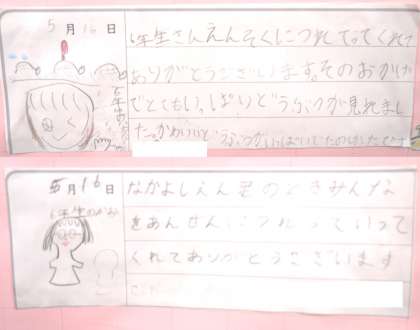 5月16日
6年生さんえんそくにつれてってくれて
ありがとうございます。そのおかげ
でとてもいっぱいどうぶつが見れまし
た。かわいいどうぶつがいっぱいいてたのしかったです
5月16日
なかよしえん足のときみんな
をあんぜんにつれっていって
くれてありがとうございます